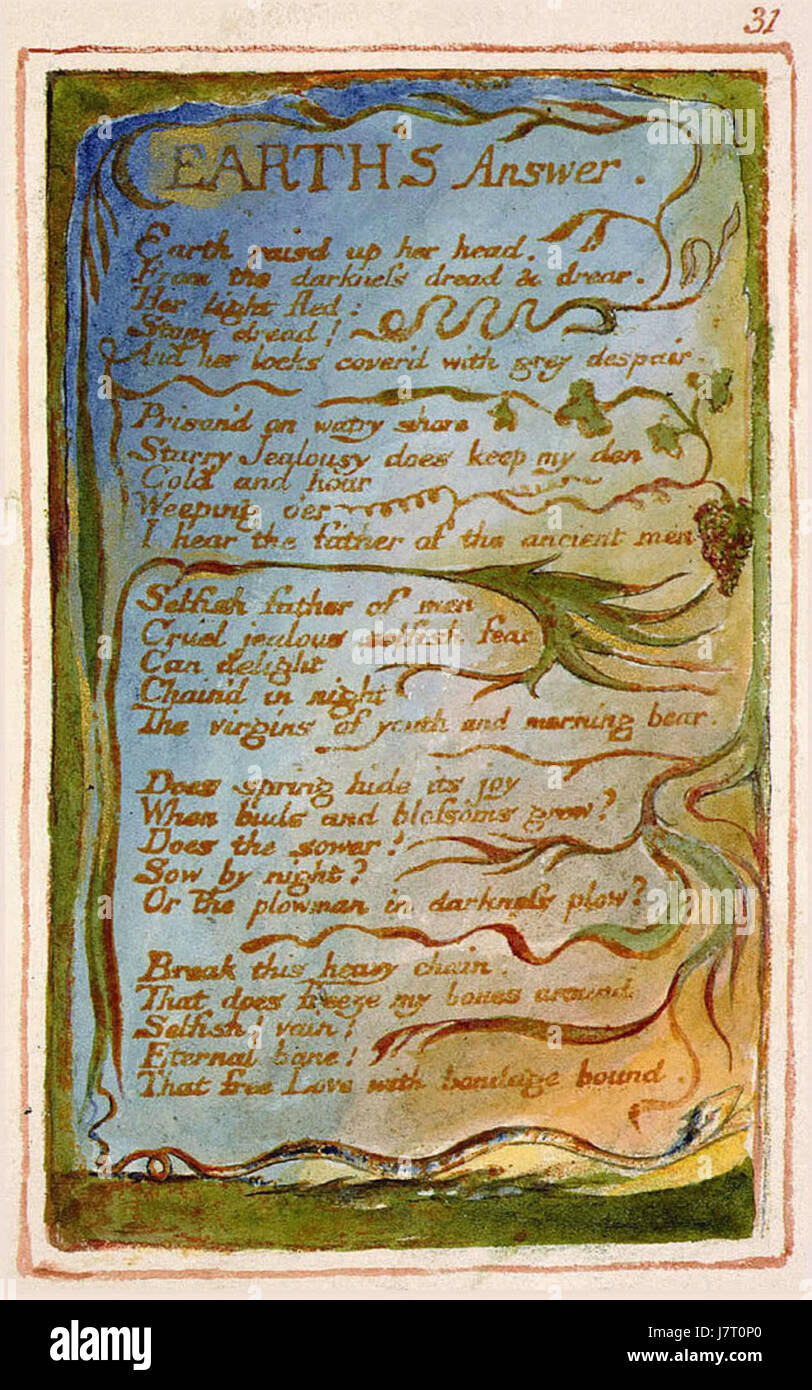 31
EARTH'S Answer.
Earth rais'd up her head.
From the darkneſs dread & drear.
Her light fled:
Stony dread!
And her locks cover'd with grey despair.
Prison'd on watry shore
Starry Jealousy does keep my den
Cold and hoar
Weeping o'er
I hear the father of the ancient men
Selfish father of men
Cruel jealous selfish fear
Can delight
Chain'd in night
The virgins of youth and morning bear.
Does spring hide its joy
When buds and bloſsoms grow?
Does the sower!
Sow by night?
Or the plowman in darkneſs plow?
Break this heavy chain.
That does freeze my bones around
Selfish! vain!
Eternal bane!
That free Love with bondage bound.
a alamy stock photo
alamy
Image ID: J7T0P0
www.alamy.com